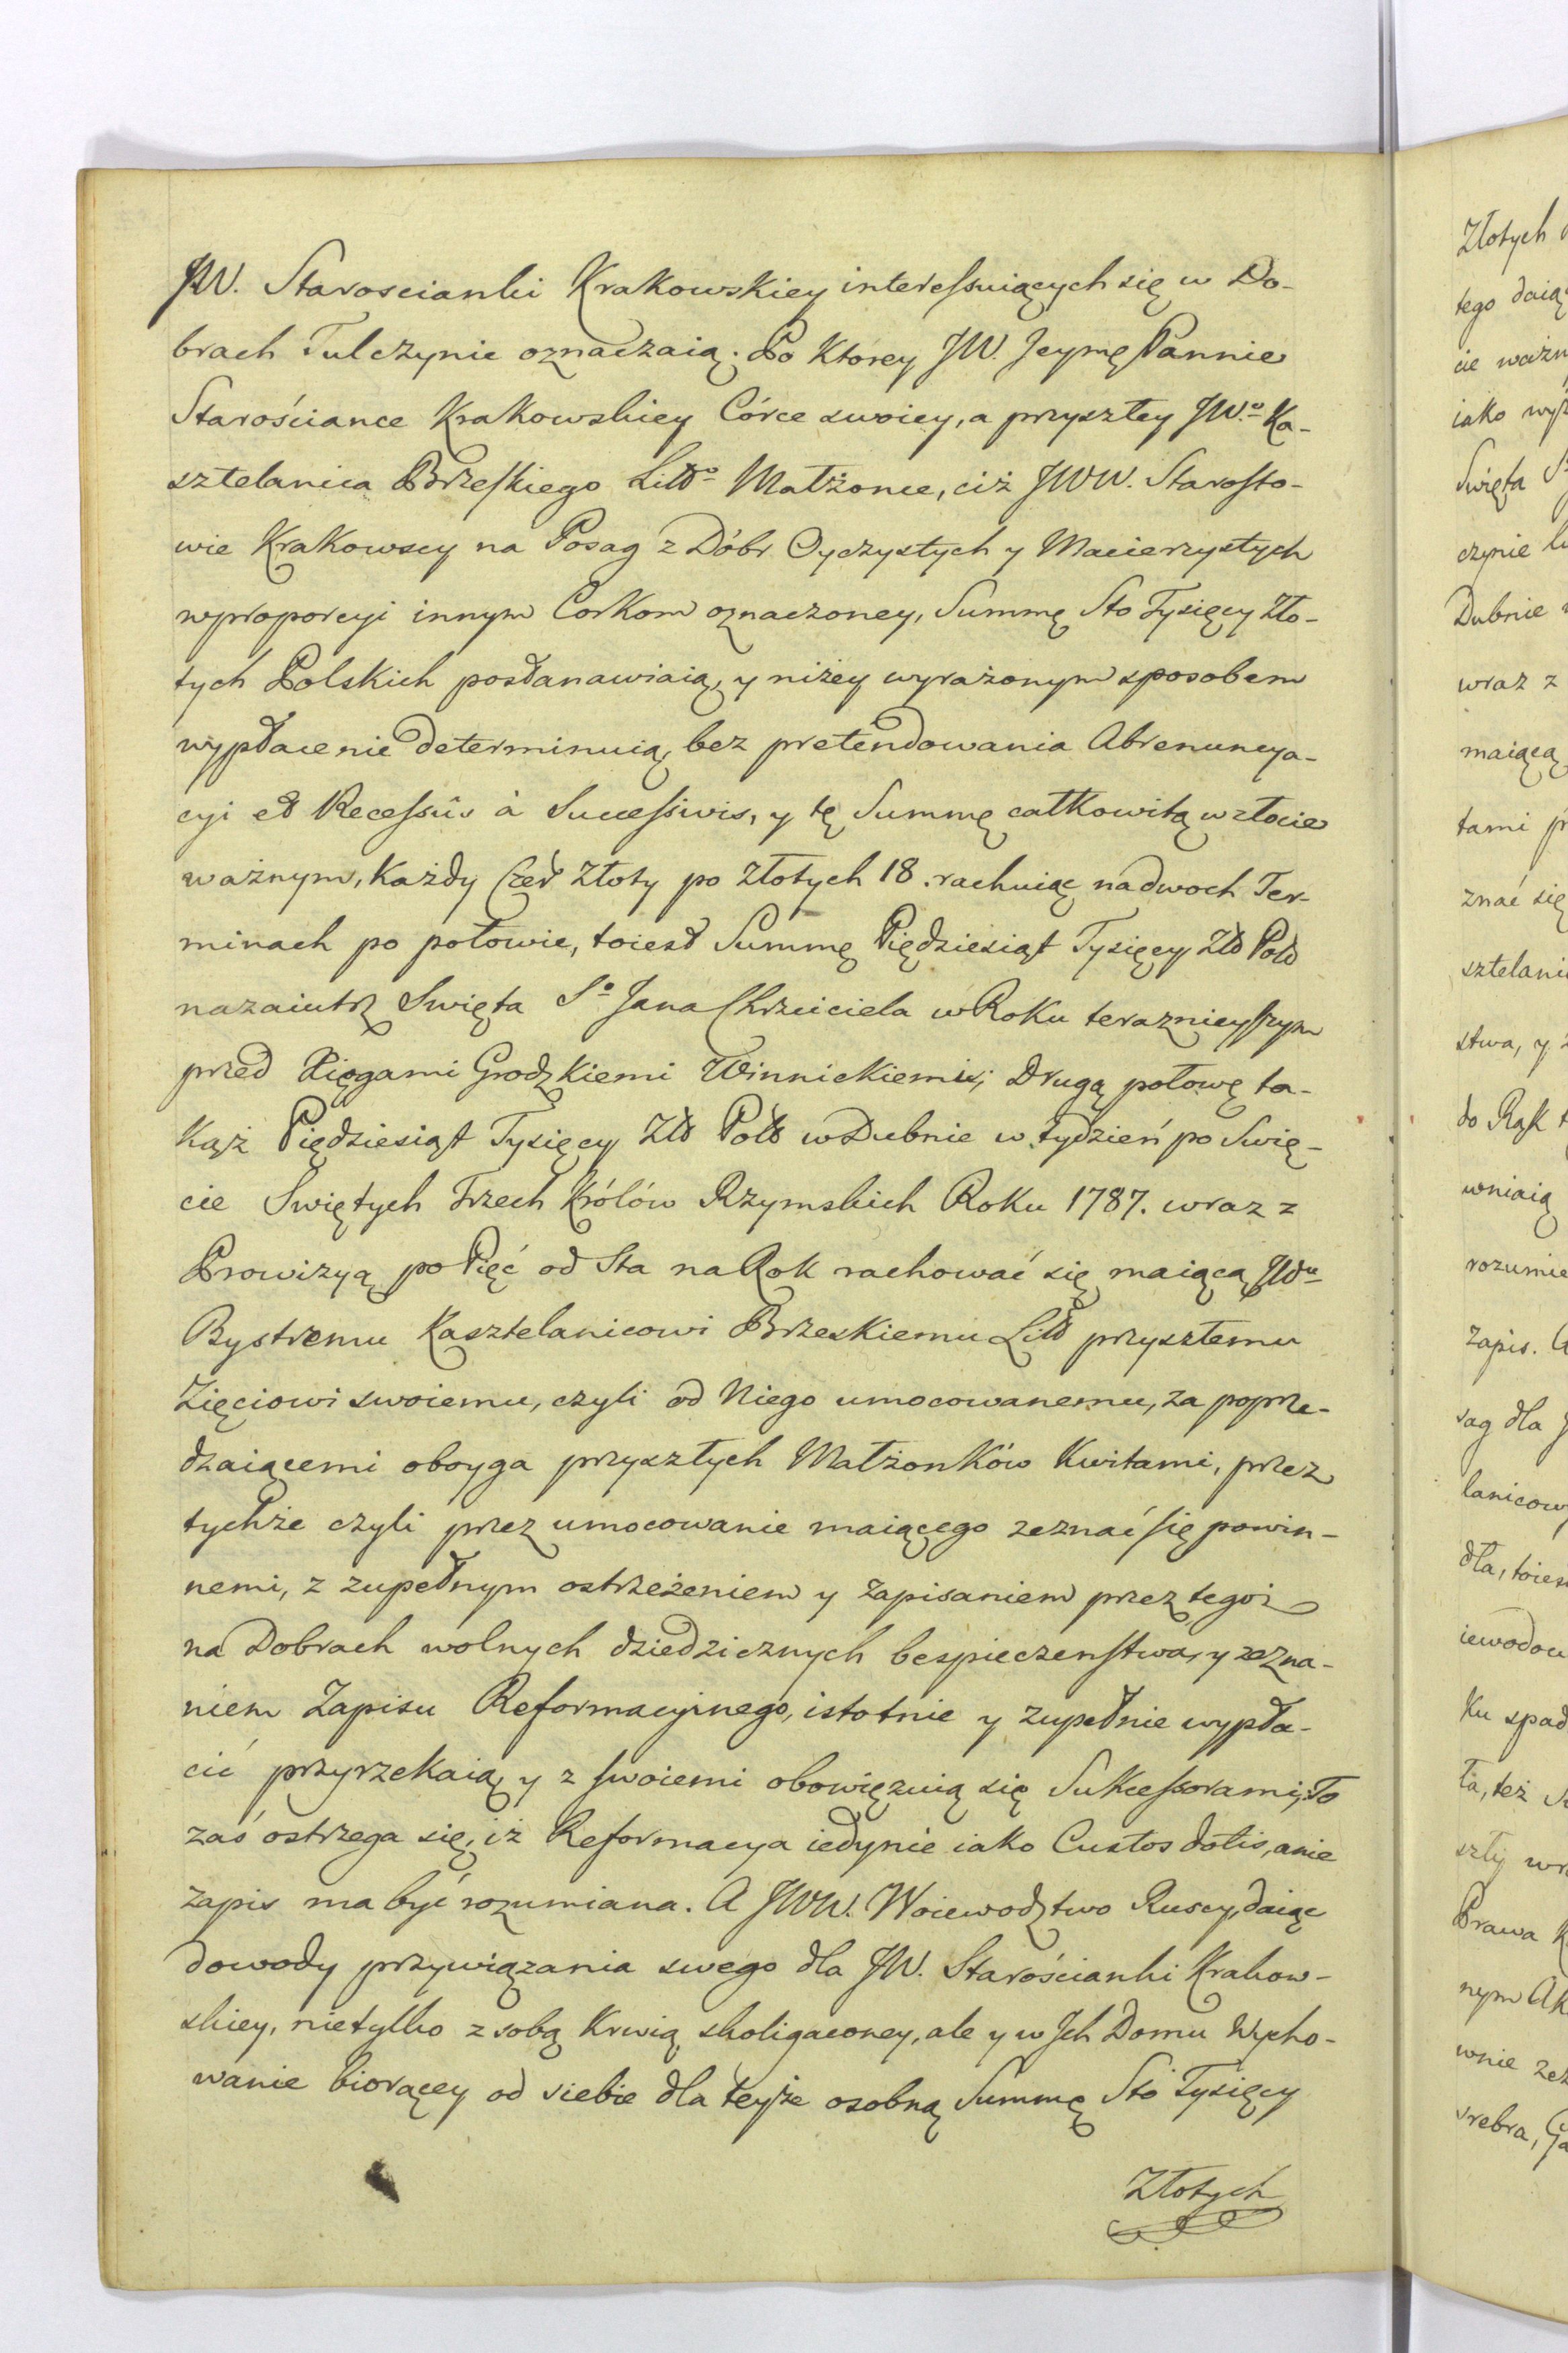 JW. Staroscianki Krakowskiey interessuiących się w Do-
brach Tulczynie oznaczaią. Po Którey JW. Jeymę Pannie
Starościance Krakowskiey Córce swoiey, a przyszłey JWo. Ka-
sztelanica Brzeskiego Litto Małżonce, ciż JWW. Starosto-
wie Krakowscy na Posag z Dóbr Oyczystych y Macierzystych
wproporcyi innym Corkom oznaczoney, Summę Sto Tysięcy Zło-
tych Polskich postanawiaią, y niżey wyrażonym sposobem
wypłacenie determinuią, bez pretendowania Abrenuncya-
cyi et Recessûs à Successivis, y tę Summę całkowitą w złocie
ważnym, Każdy Czer Złoty po Złotych 18. rachuiąc nadwoch Ter-
minach po połowie, toiest Summę Pięćdziesiąt Tysięcy Złł Poll
nazaiutrz Swięta So Jana Chrzciciela w Roku teraznieyszym
przed Xięgami Grodzkiemi Winnickiemi; Drugą połowę ta-
Kąż Pięćdziesiąt Tysięcy Złł Poll w Dubnie w tydzień po Swię-
cie Swiętych Trzech Królów Rzymskich Roku 1787. wraz z
Prowizyą po Pięć od Sta na Rok rachować się maiącą JWu
Bystremu Kasztelanicowi Brzeskiemu Litt przyszłemu
Zięciowi swoiemu, czyli od Niego umocowanemu, za poprze-
dzaiącemi oboyga przyszłych Małżonków Kwitami, przez
tychże czyli przez umocowanie maiącego zeznać się powin-
nemi, z zupełnym ostrzeżeniem y zapisaniem przez tegoż
na Dobrach wolnych dziedzicznych bespieczenstwa, y zezna-
niem Zapisu Reformacyinego, istotnie y zupełnie wypła-
cić przyrzekaią y z swoiemi obowięzuią się Sukcessorami; To
zaś ostrzega się, iż Reformacya iedynie iako Custos dotis, a nie
zapis ma być rozumiana. A JWW. Woiewodztwo Ruscy, daiąc
dowody przywiązania swego dla JW. Starościanki Krakow-
skiey, nietylko z sobą Krwią skoligaconey, ale y w Ich Domu Wycho-
wanie biorącey od siebie dla teyże osobną Summę Sto Tysięcy
Złotych
Złotych
tego daią
cie ważn
iako wyż
Swięta S
czynie lu
Dubnie
wraz z
maiącą
tami pr
znać się
sztelani
stwa, y
do Rąk
wniaią
rozumie
zapis.
sag dla J
lanicow
dła, toies
iewodow
Ku spad
ła, też
szły wr
Prawa K
nym Ak
wnie zez
srebra,